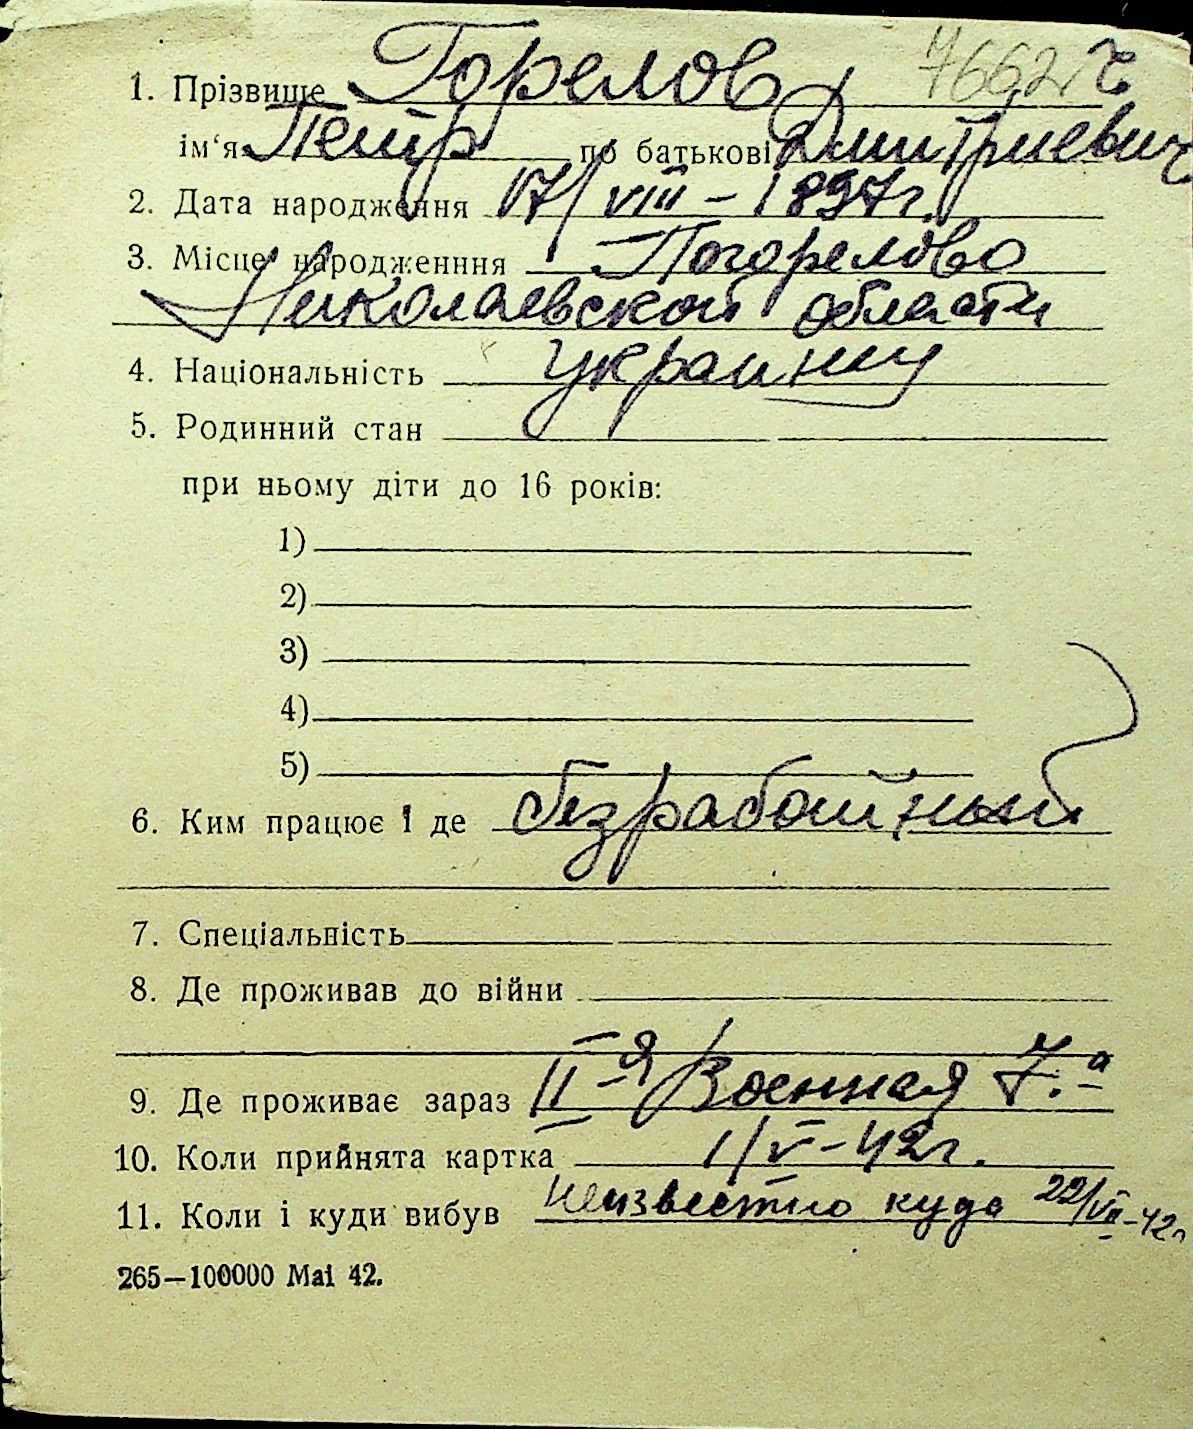 7662
1. Прізвище Горелов
ім'я Петр по батькові Дмитриевич
2. Дата народження 17/VIII – 1897г.
3. Місце народженння Погорелово
Николаевской области
4. Національність украинец
5. Родинний стан
при ньому діти до 16 років:
1)
2)
3)
4)
5)
6. Ким працює і де безработный
7. Спеціальність
8. Де проживав до війни
9. Де проживає зараз II-я Военная 7.а
10. Коли прийнята картка 1/V-42г.
11. Коли і куди вибув неизвестно куда 22/VII-42г
265—100000 Mai 42.